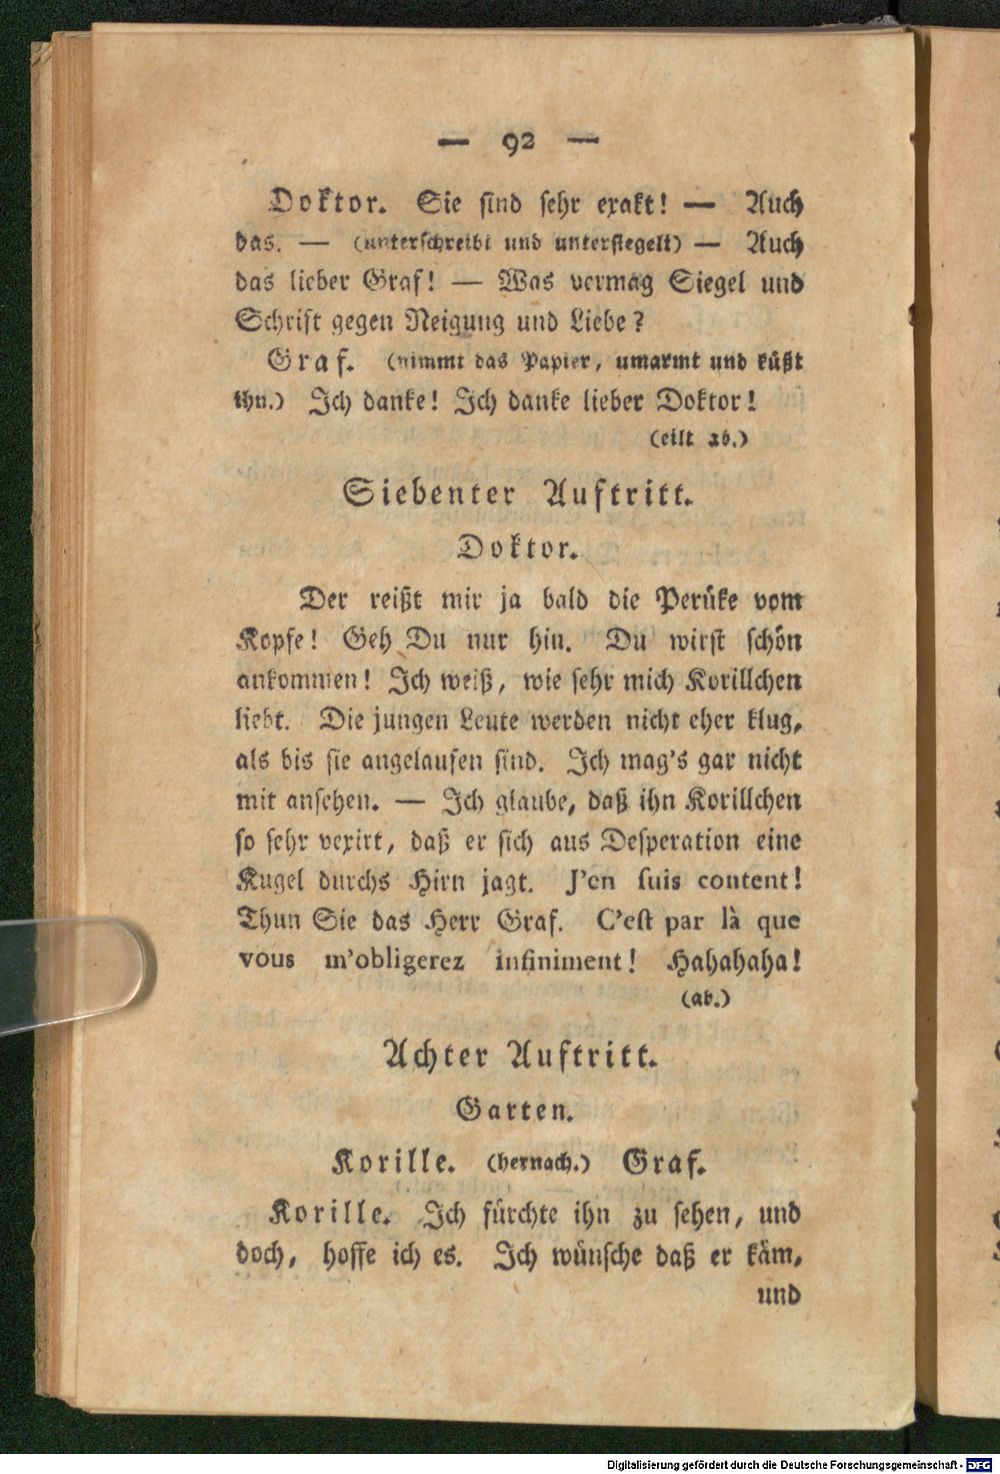 — 92 —
Doktor. Sie sind sehr exakt! — Auch
das. — (unterschreibt und untersiegelt) — Auch
das lieber Graf! — Was vermag Siegel und
Schrift gegen Neigung und Liebe?
Graf. (nimmt das Papier, umarmt und küßt
ihn.) Ich danke! Ich danke lieber Doktor!
(eilt ab.)
Siebenter Auftritt.
Doktor.
Der reißt mir ja bald die Perüke vom
Kopfe! Geh Du nur hin. Du wirst schön
ankommen! Ich weiß, wie sehr mich Korillchen
liebt. Die jungen Leute werden nicht eher klug,
als bis sie angelaufen sind. Ich mag's gar nicht
mit ansehen. — Ich glaube, daß ihn Korillchen
so sehr vexirt, daß er sich aus Desperation eine
Kugel durchs Hirn jagt. J'en suis content!
Thun Sie das Herr Graf. C'est par là que
vous m'obligerez infiniment! Hahahaha!
(ab.)
Achter Auftritt.
Garten.
Korille. (hernach.) Graf.
Korille. Ich fürchte ihn zu sehen, und
doch, hoffe ich es. Ich wünsche daß er käm,
und
Digitalisierung gefördert durch die Deutsche Forschungsgemeinschaft - DFG